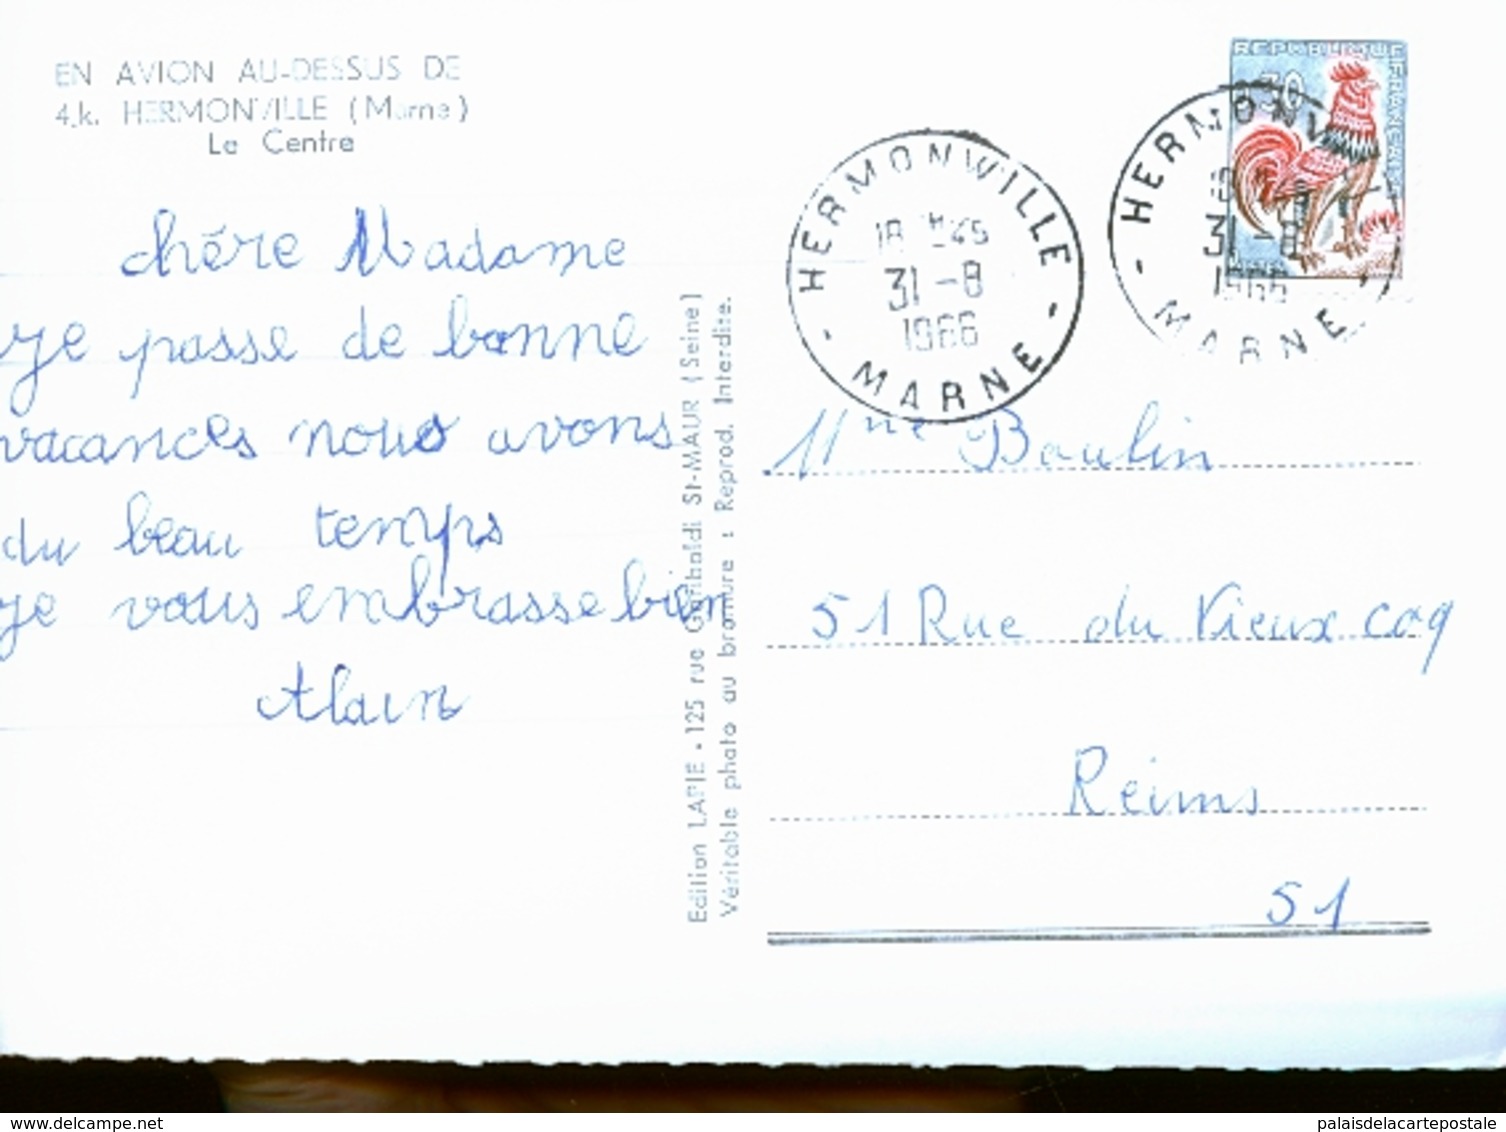 EN AVION AU-DESSUS DE
4.k. HERMONVILLE (Marne)
Le Centre
chére Madame
je passe de bonne
vacances nous avons
du beau temps
je vous embrasse bien
Alain
Edition LAPIE - 125 rue Garibaldi St-MAUR (Seine)
Véritable photo au bromure : Reprod. Interdite.
HERMONVILLE
18 H45
31-8
1966
- MARNE -
REPUBLIQUE FRANÇAISE
0,30
HERMONV
31-8
1966
- MARNE -
Mme Boulin
51 Rue du Vieux coq
Reims
51
delcampe.net
palaisdelacartepostale